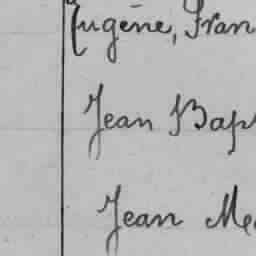 Eugène, Fran
Jean Bap
Jean Me